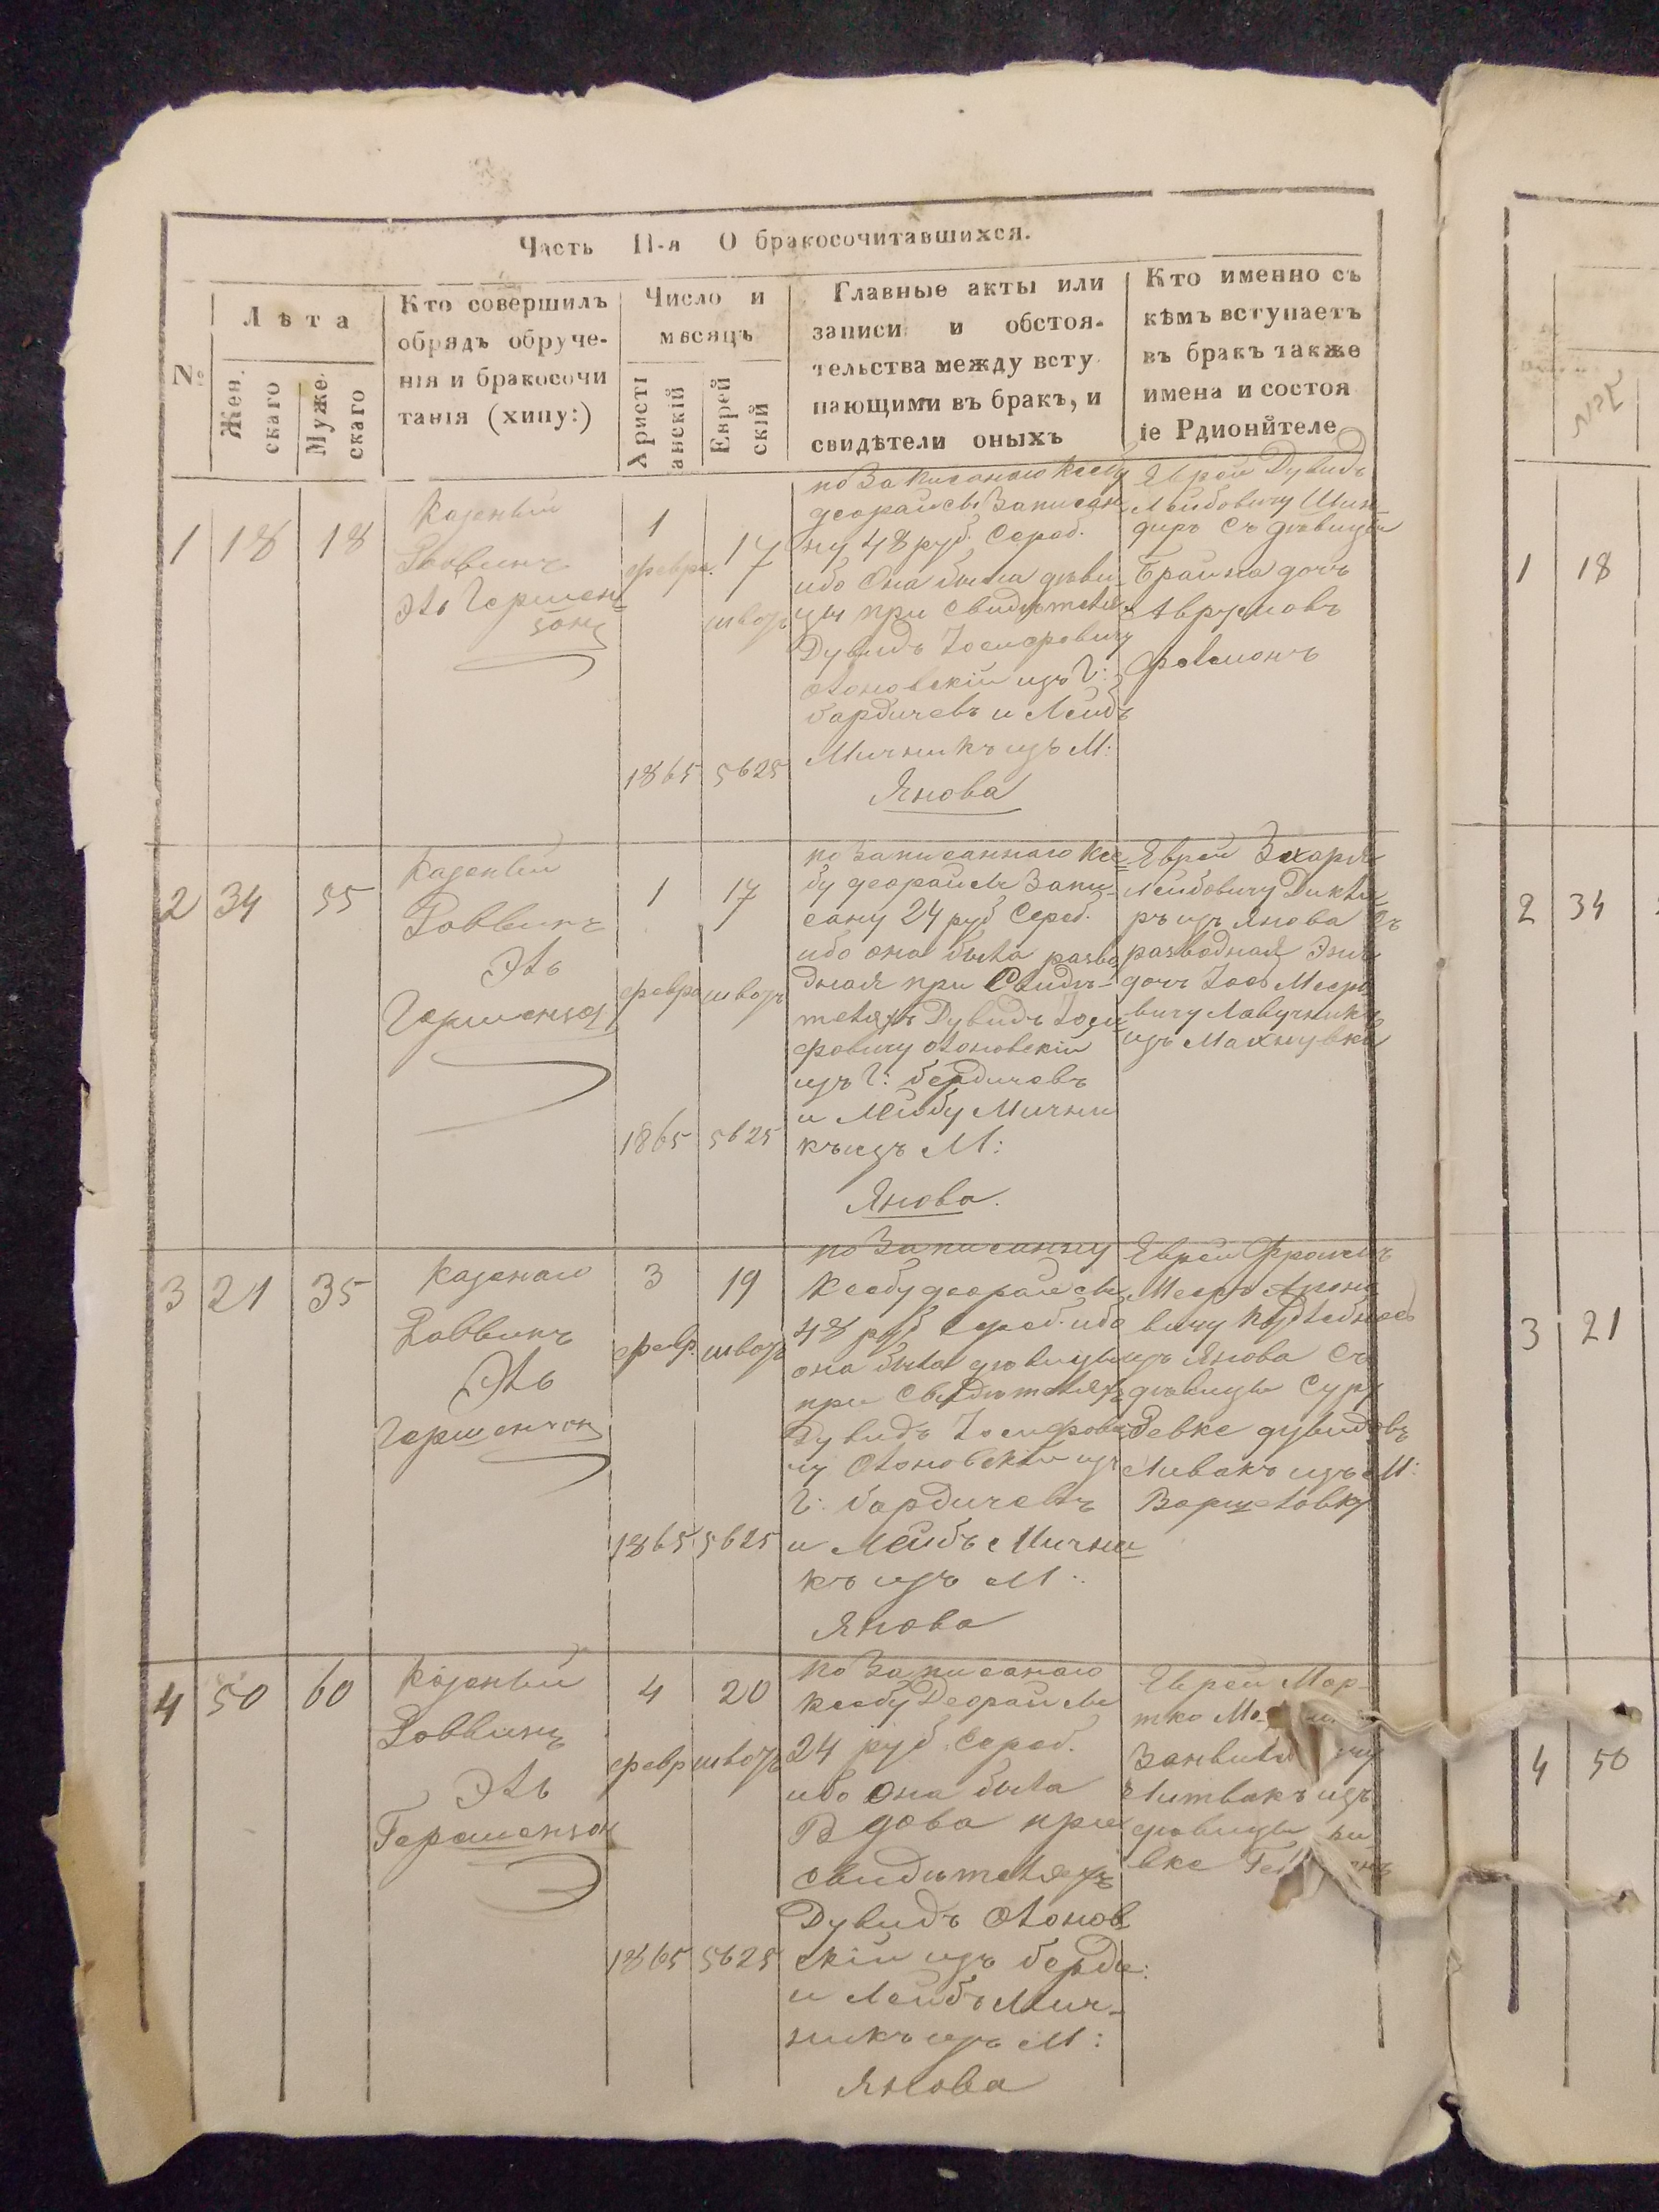 Часть II-я О бракосочитавшихся.
№
Лѣта
Жен.
скаго
Муже.
скаго
Кто совершилъ
обрядъ обруче-
нія и бракосочи
танія (хипу:)
Число и
мѣсяцъ
Христі
анскій
Еврей
скій
Главные акты или
записи и обстоя-
тельства между всту
пающими въ бракъ, и
свидѣтели оныхъ
Кто именно съ
кѣмъ вступаетъ
въ бракъ также
имена и состоя
іе Рдионйтеле
1 18 18
Казеный
Раввинъ
Эль Гершен=
зонъ
1
февра.
1865
17
шватъ
5625
по Записаного Ксебу
деорайсы Записан
ну 48 руб. Сереб.
ибо Она была дѣви-
цы при свидѣтеля
Дувидъ Іосифовичу
Олоновскій изъ Г:
бардичевъ и Лейбъ
Мичникъ изъ М:
Янова
Еврей Дувидъ
Лейбовичу Шин-
деръ Съ дѣвицы
Брайна дочь
Аврумовъ
2 34 55
Казеный
Раввинъ
Эль
Гершензон
1
февра
1865
17
шватъ
5625
по Записаннаго Ксе=
бу деорайсы Запи-
сану 24 руб Сереб.
ибо она была разво
дная при Свидѣ-
теляхъ Дувидъ Іоси
фовичу Олоновскій
изъ Г: бердичевъ
и Лейбу Мични
къ изъ М:
Янова.
Еврей Захарія
Лейбовичу
ръ изъ Янова Съ
разводная
дочъ
изъ Махнувка
3 21 35
Казенаго
Раввинъ
Эль
Гершензон
3
февр.
1865
19
шватъ
5625
по Записанну
Ксебу деорайсы
48 руб Сереб. ибо
она была дѣвицы
при Свидѣтеляхъ
Дувидъ Іосифови
чу Олоновскій изъ
Г: бардичевъ
и Лейбъ Мични=
къ изъ М:
Янова
Еврей
изъ Янова Съ
дѣвицы Сура
Ревке дувидовъ
Ливакъ изъ М:
4 50 60
Казеный
Раввинъ
Эль
Гершензон
4
февр
1865
20
шватъ
5625
по Записаного
Ксебу Деорайсы
24 руб. Сереб.
ибо Она была
Вдова при
свидѣтеляхъ
Дувидъ Олонов
скій изъ берди:
и Лейбъ Мич-
никъ изъ М:
Янова
Еврей Мор-
тко
Литвакъ изъ
1 18
2 34
3 21
4 50